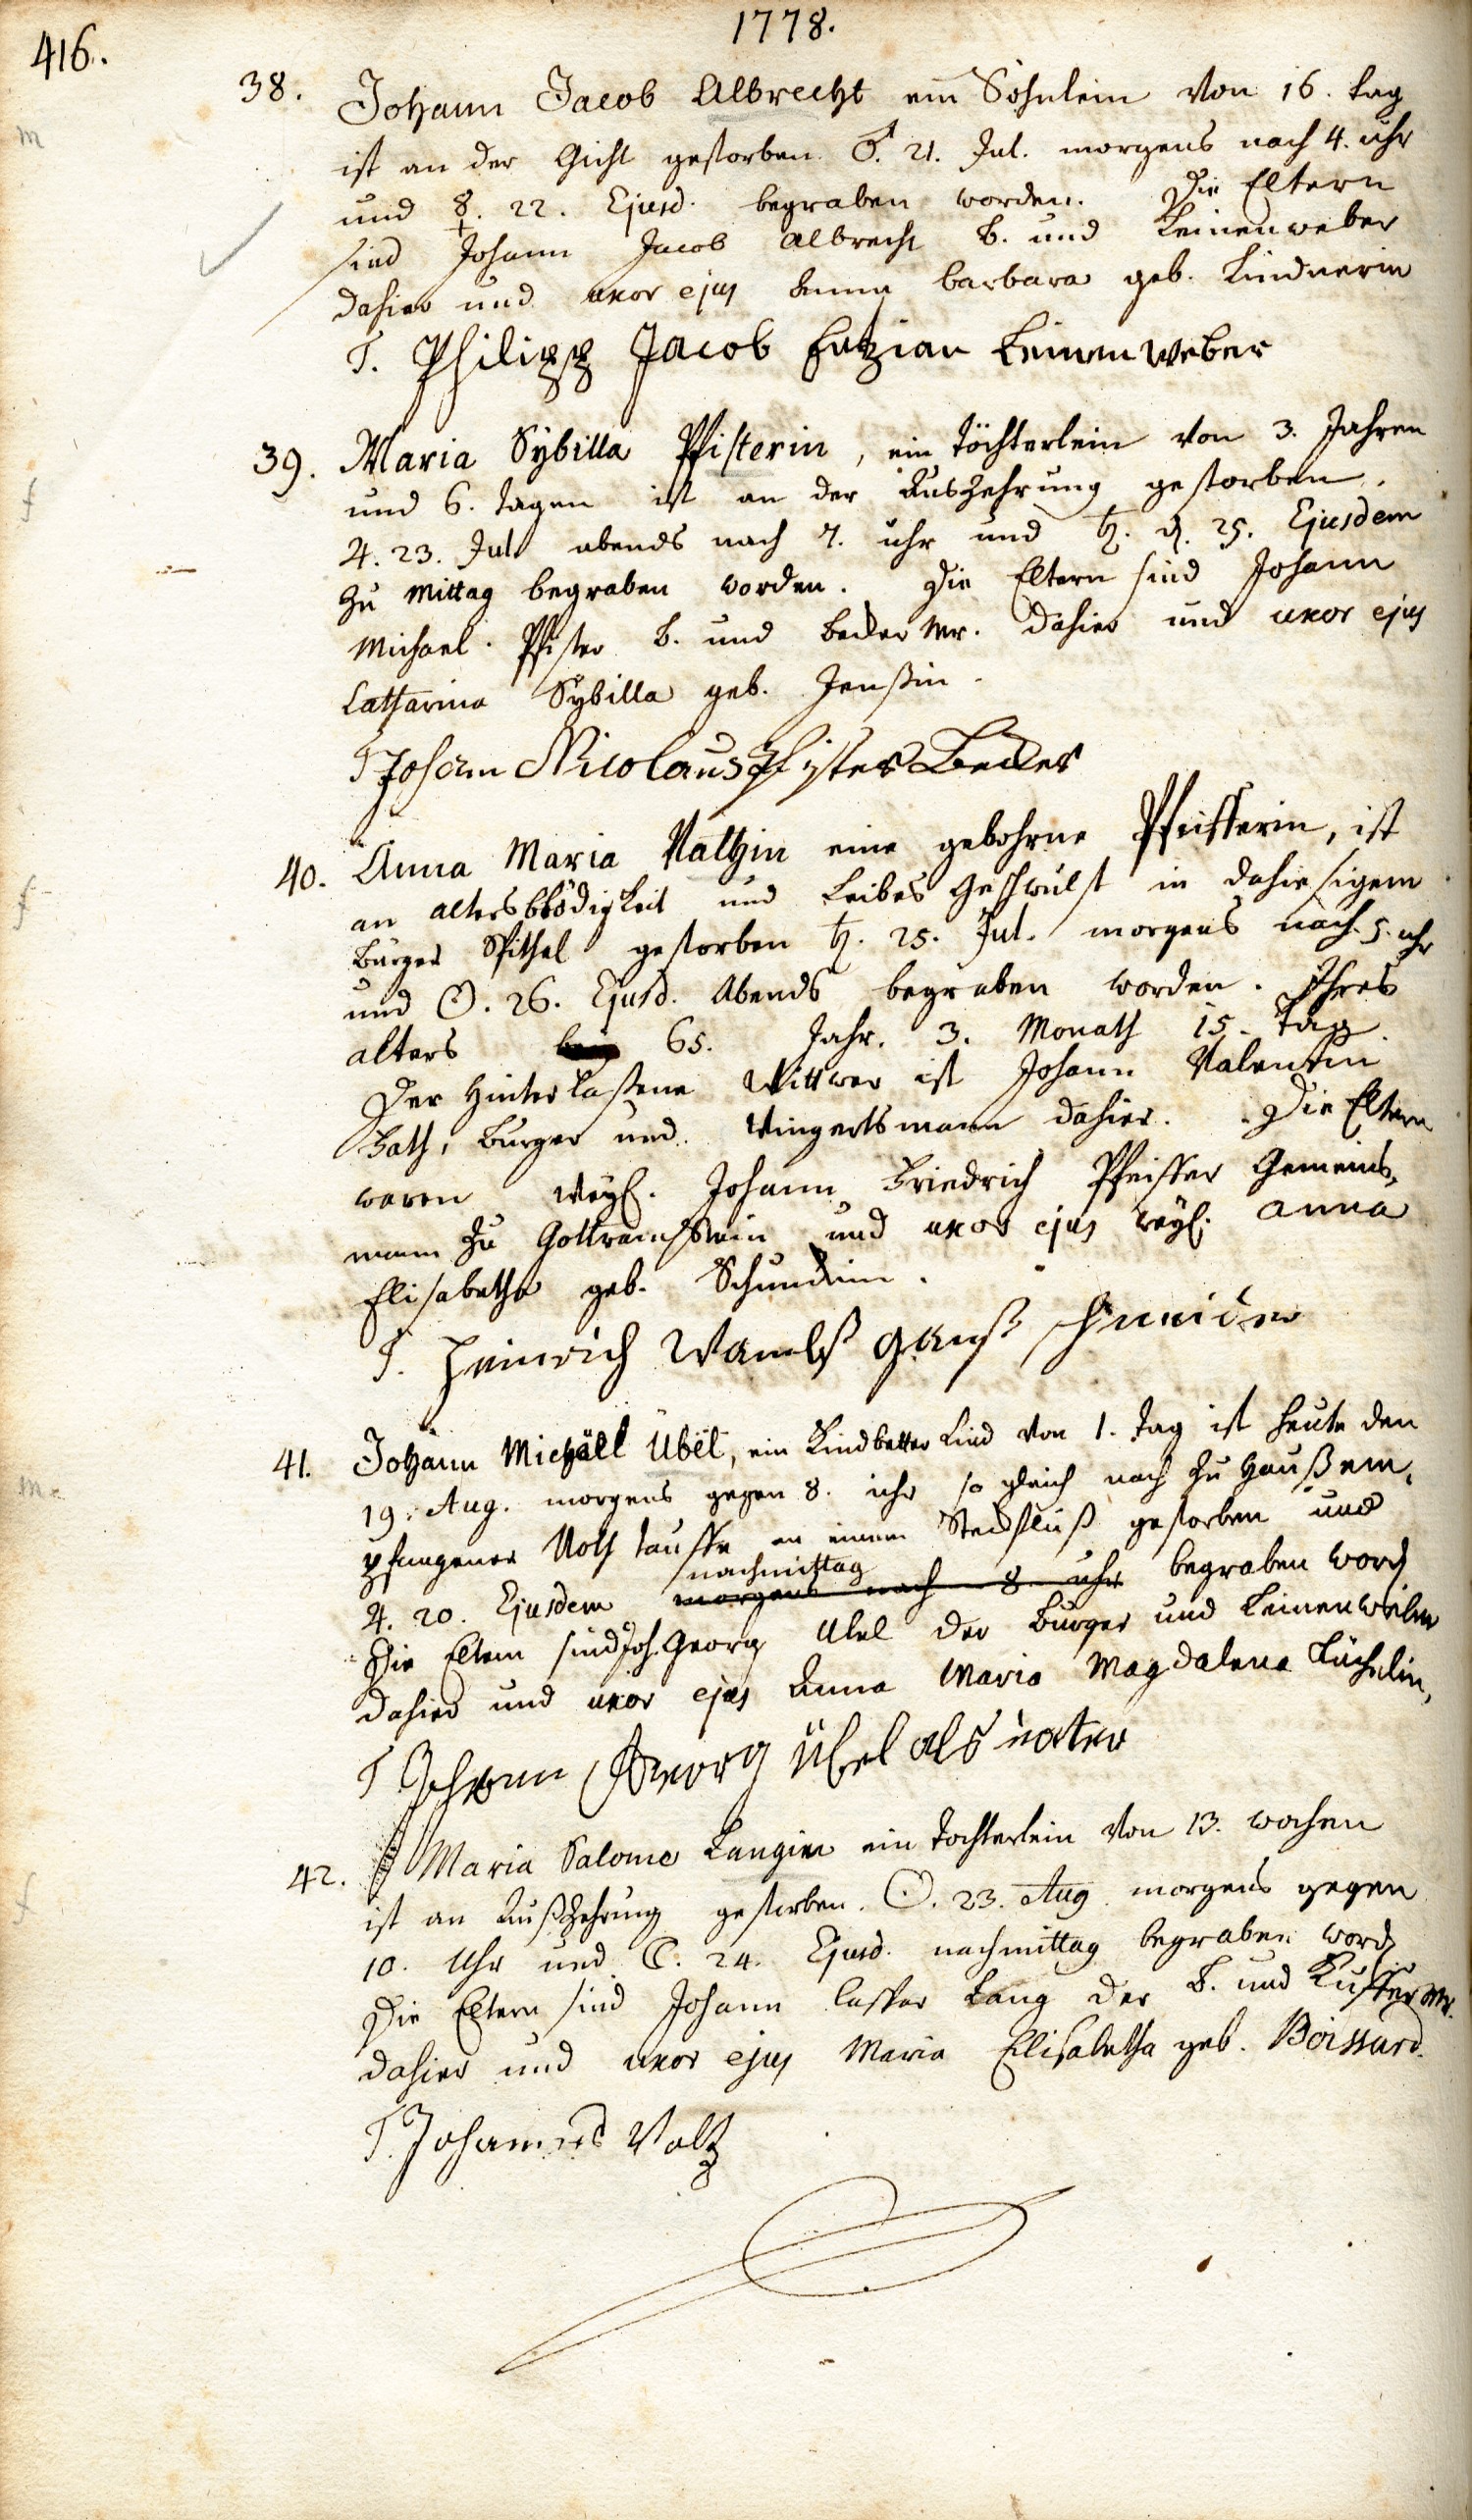 416.
1778.
38. Johann Jacob Albrecht ein Söhnlein von 16. tag
ist an der Gicht gestorben ♂. 21. Jul. morgens nach 4. uhr
und ☿. 22. Ejusd. begraben worden. Die Eltern
sind Johann Jacob Albrecht B. und Leinenweber
dahier und uxor ejus Anna barbara geb. Lindnerin
T. Philipp Jacob Leinenweber
39. Maria Sÿbilla Pfisterin, ein töchterlein von 3. Jahren
und 6. tagen ist an der Auszehrung gestorben.
♃. 23. Jul. abends nach 7. uhr und ♄. d. 25. Ejusdem
zu mittag begraben worden. Die Eltern sind Johann
Michael Pfister B. und Becker Mr. dahier und uxor ejus
Catharina Sÿbilla geb.
T Johann Nicolaus Pfister Becker
40. Anna Maria Vathin eine gebohrne Pfeifferin, ist
an altersblödigkeit und Leibes Geschwulst in dahiesigem
Bürger Spithal gestorben ♄. 25. Jul. morgens nach 5. uhr
und ☉. 26. Ejusd. Abends begraben worden. Ihres
alters 65. Jahr. 3. Monath 15. Tag
Der Hinterlaßene Wittwer ist Johann Valentin
Burger und Wingertsmann dahier. Die Eltern
waren weyl. Johann Friedrich Pfeiffer Gemeins-
mann zu Gottramstein und uxor ejus weyl. Anna
Elisabetha geb.
T. Heinrich Wambsganß schneider
41. Johann Michäel Übel, ein Kindbetter Kind von 1. tag ist heute den
19. Aug. morgens gegen 8. uhr so gleich nach zu Hauß em-
pfangener Noth tauffe an einem Steckfluß gestorben und
nachmittag
♃. 20. Ejusdem morgens nach 8 uhr begraben word
Die Eltern sind Joh. Georg Ubel der Burger und Leinenweber
dahier und uxor ejus Anna Maria Magdalena
T Johann Georg Übel als vater
42. Maria Salome Langin ein Tochterlein von 13. wochen
ist an Außzehrung gestorben. ☉. 23. Aug. morgens gegen
10. Uhr und ☾. 24. Ejusd. nachmittag begraben word
Die Eltern sind Johann Casper Lang der B. und Kuffer Mr.
dahier und uxor ejus Maria Elisabetha geb. Boissard.
T. Johannes Voltz